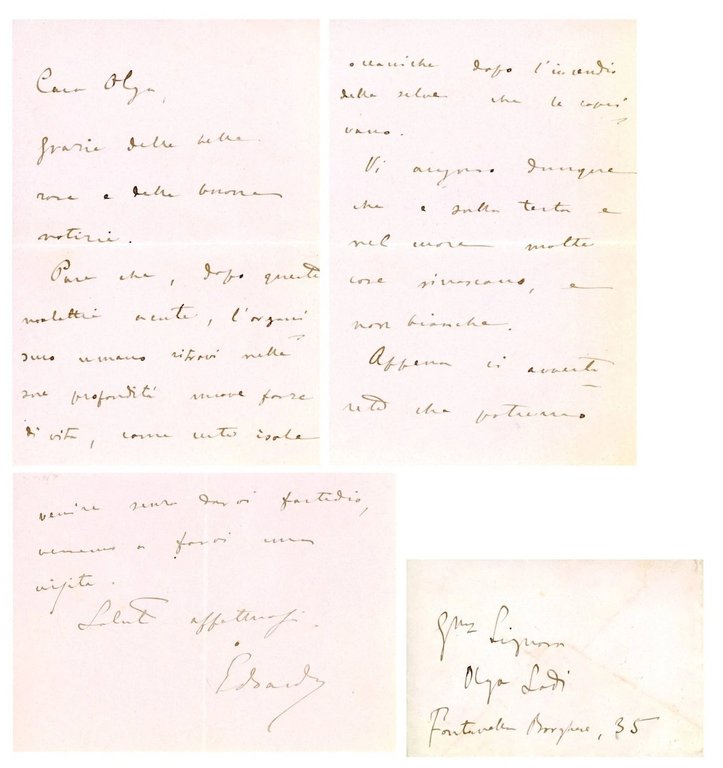 Cara Olga,
grazie delle belle
rose e delle buone
notizie.
Pare che, dopo queste
malattie acute, l'organi
smo umano ritrovi nelle
sue profondità nuove forze
di vita, come certe isole
oceaniche dopo l'incendio
della selva che le copri
vano.
Vi auguro dunque
che e sulla testa e
nel cuore molte
cose rinascano, e
non bianche.
Appena ci avverti
rete che potremo
venire senza darvi fastidio,
verremo a farvi una
visita.
Saluti affettuosi.
Edoardo
Gma Signora
Olga Lodi
Fontanella Borghese, 35